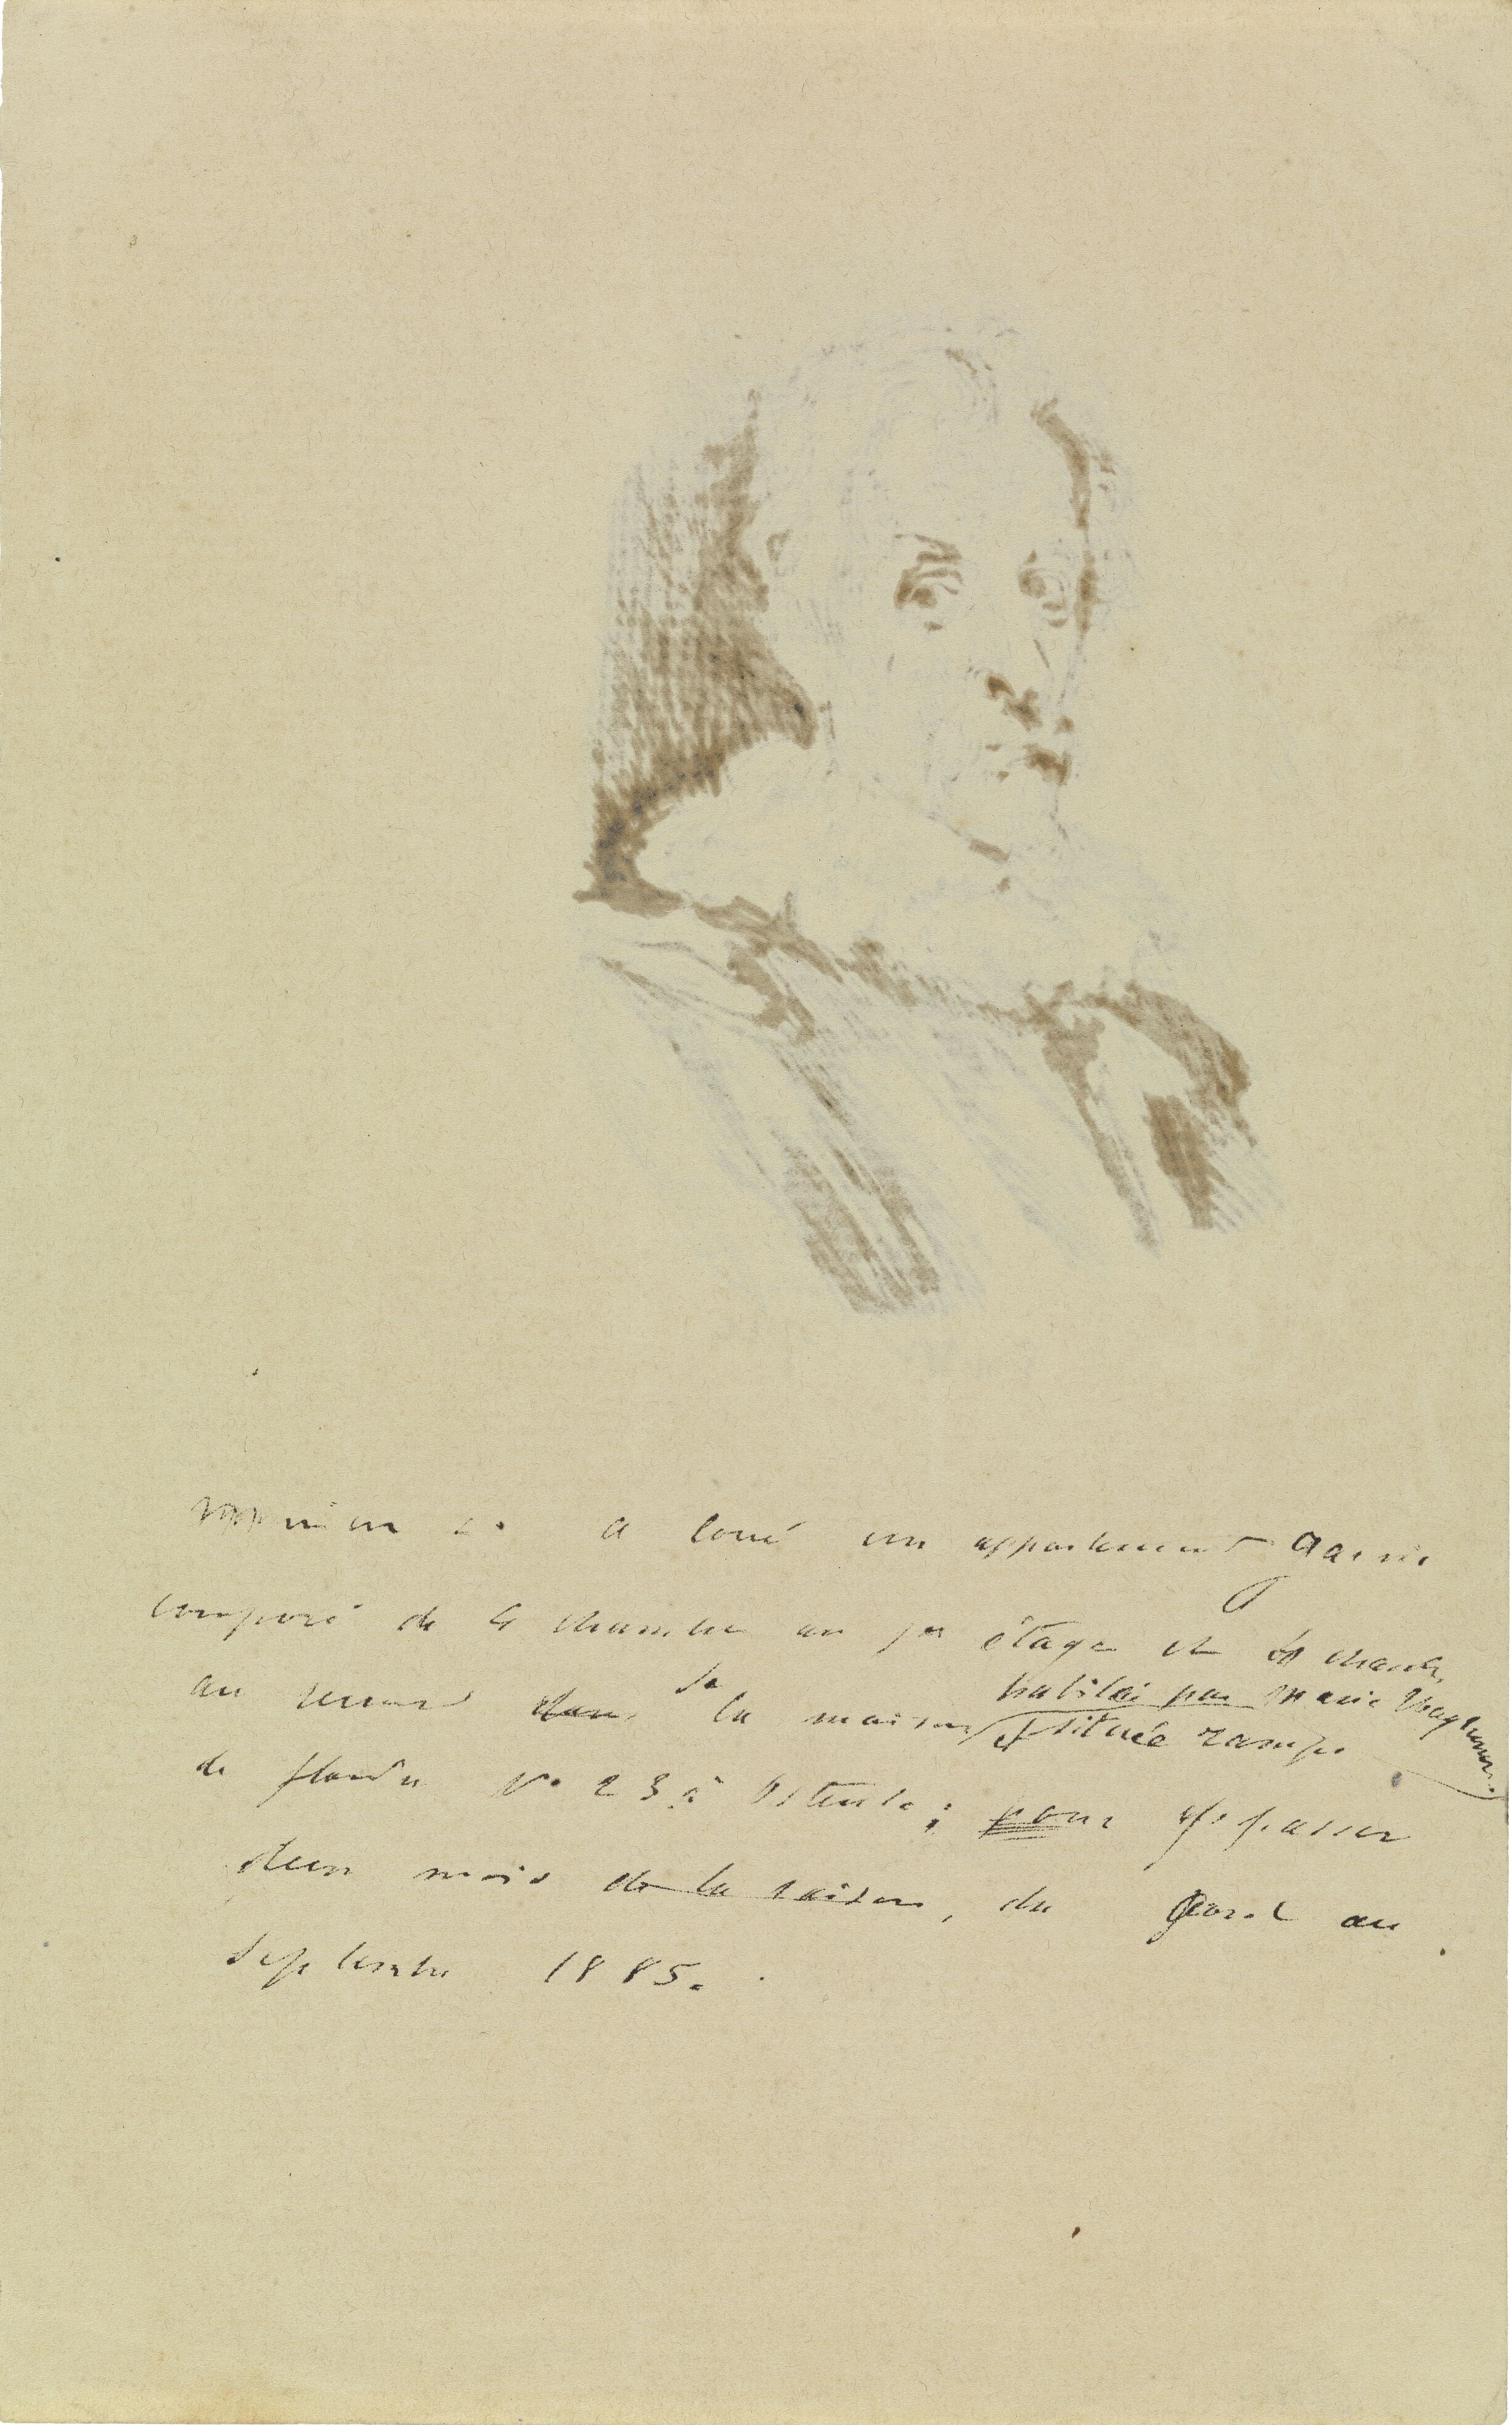 a loué un appartement garni
composé de 4 chambre au 1er étage et chambr
au second dans la maison
habitée par Marie
et située rampe
de flandre No 23 à Ostende; pour y passer
deux mois de la saison, du au
Septembre 1885.